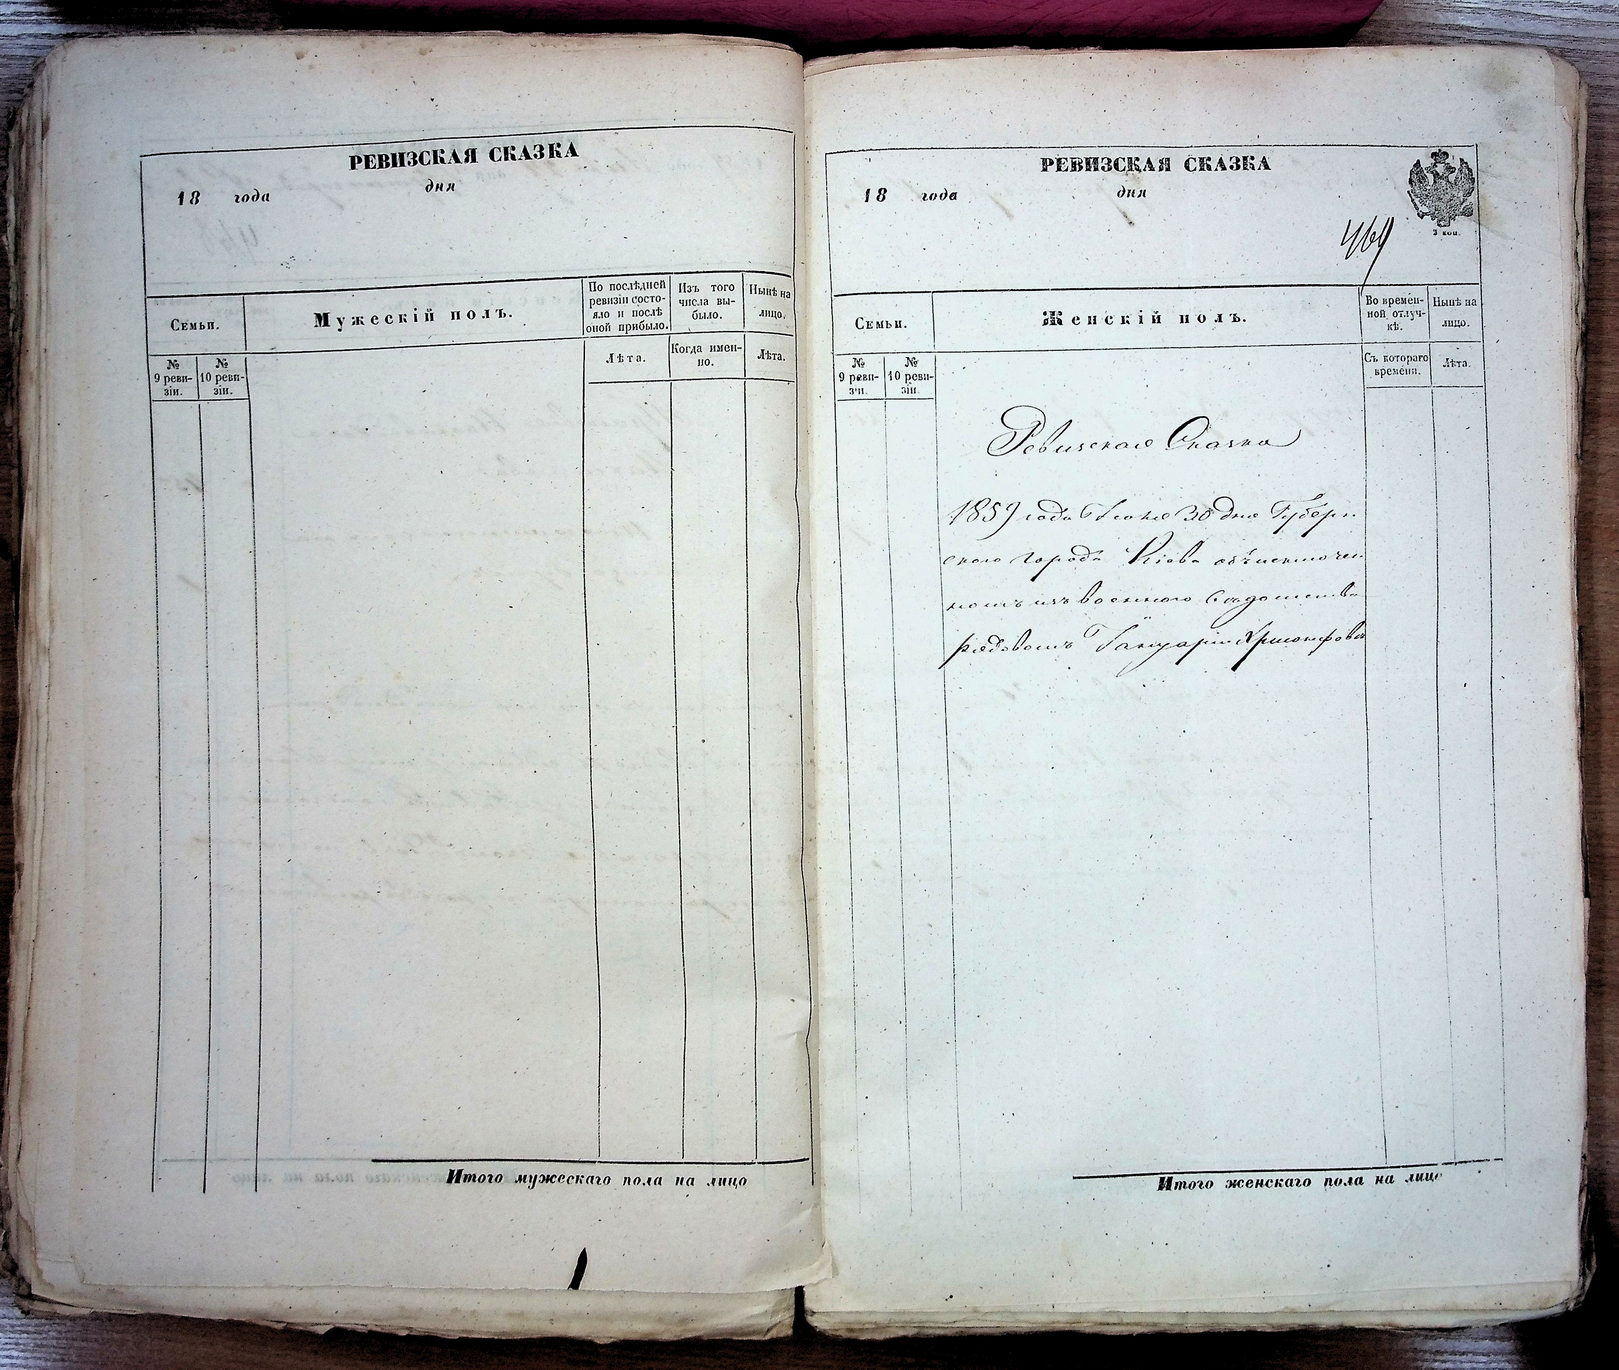 РЕВИЗСКАЯ СКАЗКА
18 года дня
Семьи.
Мужескій полъ.
По послѣдней
ревизіи состо-
яло и послѣ
оной прибыло.
Изъ того
числа вы-
было.
Нынѣ на
лицо.
№
9 реви-
зіи.
№
10 реви-
зіи.
Лѣта.
Когда имен-
но.
Лѣта.
Итого мужескаго пола на лицо
РЕВИЗСКАЯ СКАЗКА
18 года дня
3 коп.
469
Семьи.
Женскій полъ.
Во времен-
ной отлуч-
кѣ.
Нынѣ на
лицо.
№
9 реви-
зіи.
№
10 реви-
зіи.
Съ котораго
времени.
Лѣта.
Ревизская Сказка
года 30 дня Губерн
ского города Кіева
изъ военного
рядовомъ
Итого женскаго пола на лицо